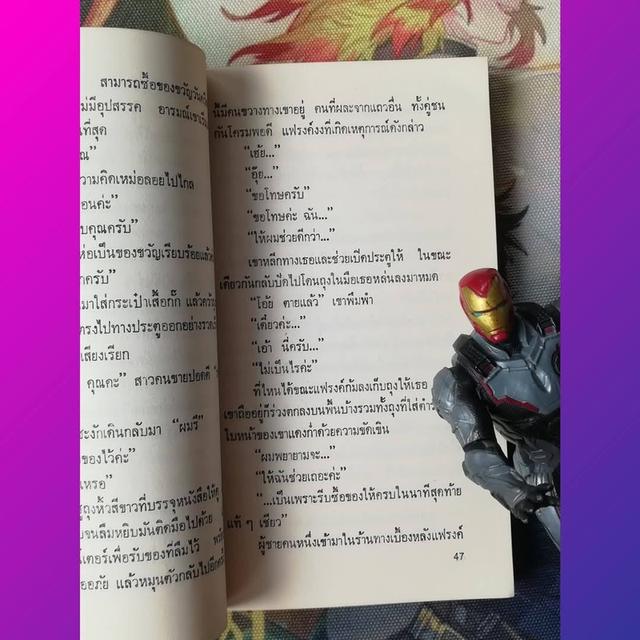 สามารถซื้อของขวัญวัน
ไม่มีอุปสรรค อารมณ์เขาเริ่
ที่สุด
ณ”
วามคิดเหม่อลอยไปไกล
อนค่ะ”
บคุณครับ”
ห่อเป็นของขวัญเรียบร้อยแล้ว
าครับ”
มาใส่กระเป๋าเสื้อกั๊ก แล้ว
ตรงไปทางประตูออกอย่างรวดเร็
เสียงเรียก
คุณคะ” สาวคนขายปอดดี
ชะงักเดินกลับมา “ผมรึ”
ของไว้ค่ะ”
เหรอ”
ถุงหิ้วสีขาวที่บรรจุหนังสือให้
จนลืมหยิบมันติดมือไปด้วย
เตอร์เพื่อรับของที่ลืมไว้
ออภัย แล้วหมุนตัวกลับไปอีก
นี้มีคนขวางทางเขาอยู่ คนที่ผละจากแถวอื่น ทั้งคู่ชน
กันโครมพอดี แฟรงค์งงที่เกิดเหตุการณ์ดังกล่าว
“เฮ้ย...”
“อุ๊ย...”
“ขอโทษครับ”
“ขอโทษค่ะ ฉัน...”
“ให้ผมช่วยดีกว่า...”
เขาหลีกทางเธอและช่วยเปิดประตูให้ ในขณะ
เดียวกันกลับปัดไปโดนถุงในมือเธอหล่นลงมาหมด
“โอ้ย ตายแล้ว” เขาพึมพำ
“เดี๋ยวค่ะ...”
“เอ้า นี่ครับ...”
“ไม่เป็นไรค่ะ”
ที่ไหนได้ขณะแฟรงค์ก้มลงเก็บถุงให้เธอ
เขาถืออยู่ก็ร่วงตกลงบนพื้นบ้างรวมทั้งถุงที่ใส่
ใบหน้าของเขาแดงก่ำด้วยความขัดเขิน
“ผมพยายามจะ...”
“ให้ฉันช่วยเถอะค่ะ”
“...เป็นเพราะรีบซื้อของให้ครบในนาทีสุดท้าย
แท้ ๆ เชียว”
ผู้ชายคนหนึ่งเข้ามาในร้านทางเบื้องหลังแฟรงค์
47